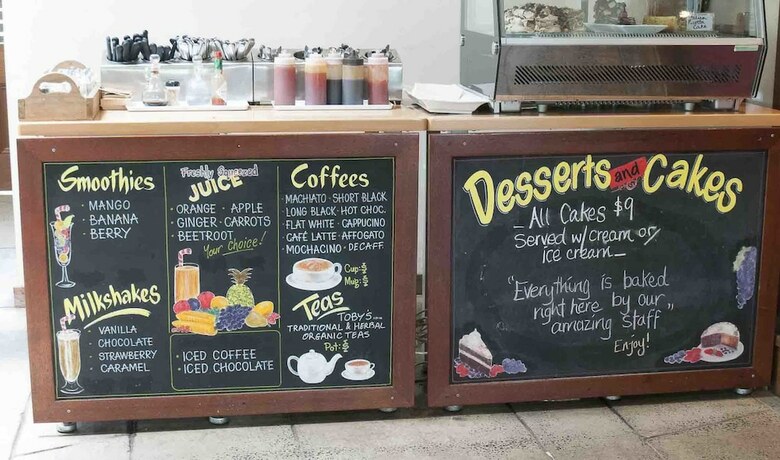 Smoothies
• MANGO
• BANANA
• BERRY
Milkshakes
• VANILLA
• CHOCOLATE
• STRAWBERRY
• CARAMEL
Freshly Squeezed
JUICE
• ORANGE • APPLE
• GINGER • CARROTS
• BEETROOT
Your choice!
• ICED COFFEE
• ICED CHOCOLATE
Coffees
• MACHIATO • SHORT BLACK
• LONG BLACK • HOT CHOC.
• FLAT WHITE • CAPPUCINO
• CAFÉ LATTE • AFFOGATO
• MOCHACINO • DECAFF.
Cup:
Mug:
Teas
TOBY'S
TRADITIONAL & HERBAL
ORGANIC TEAS
Pot:
Desserts and Cakes
All Cakes $9
Served w/cream or
ice cream
"Everything is baked
right here by our
amazing staff"
Enjoy!